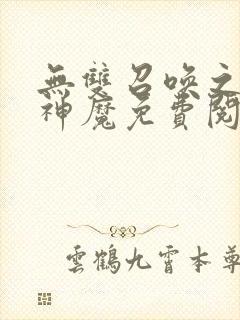 無雙召喚之
神魔免費閱
雲鶴九霄本尊